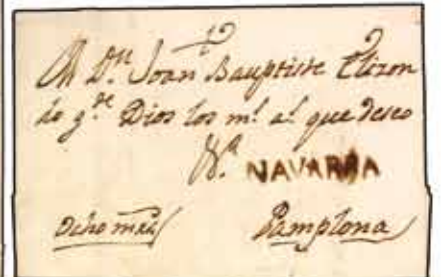 A Dn. Joan Bauptiste Elizon
do g.de Dios los ms. as. que deseo
NAVARRA
Ocho mrs.
Pamplona